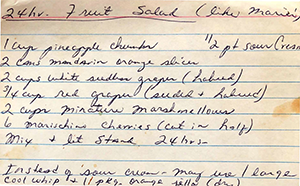 24 hr. Fruit Salad (like Maries
1 cup pineapple chunks 1/2 pt sour Cream
2 cans mandarin orange slices
2 cups white seedless grapes (halved)
3/4 cup red grapes (seeded & halved)
2 cups minature marshmellows
6 marischino cherries (cut in half)
Mix & let Stand 24 hrs-
Instead of sour cream - may use 1 large
cool whip & 1 pkg. orange jello (dry)